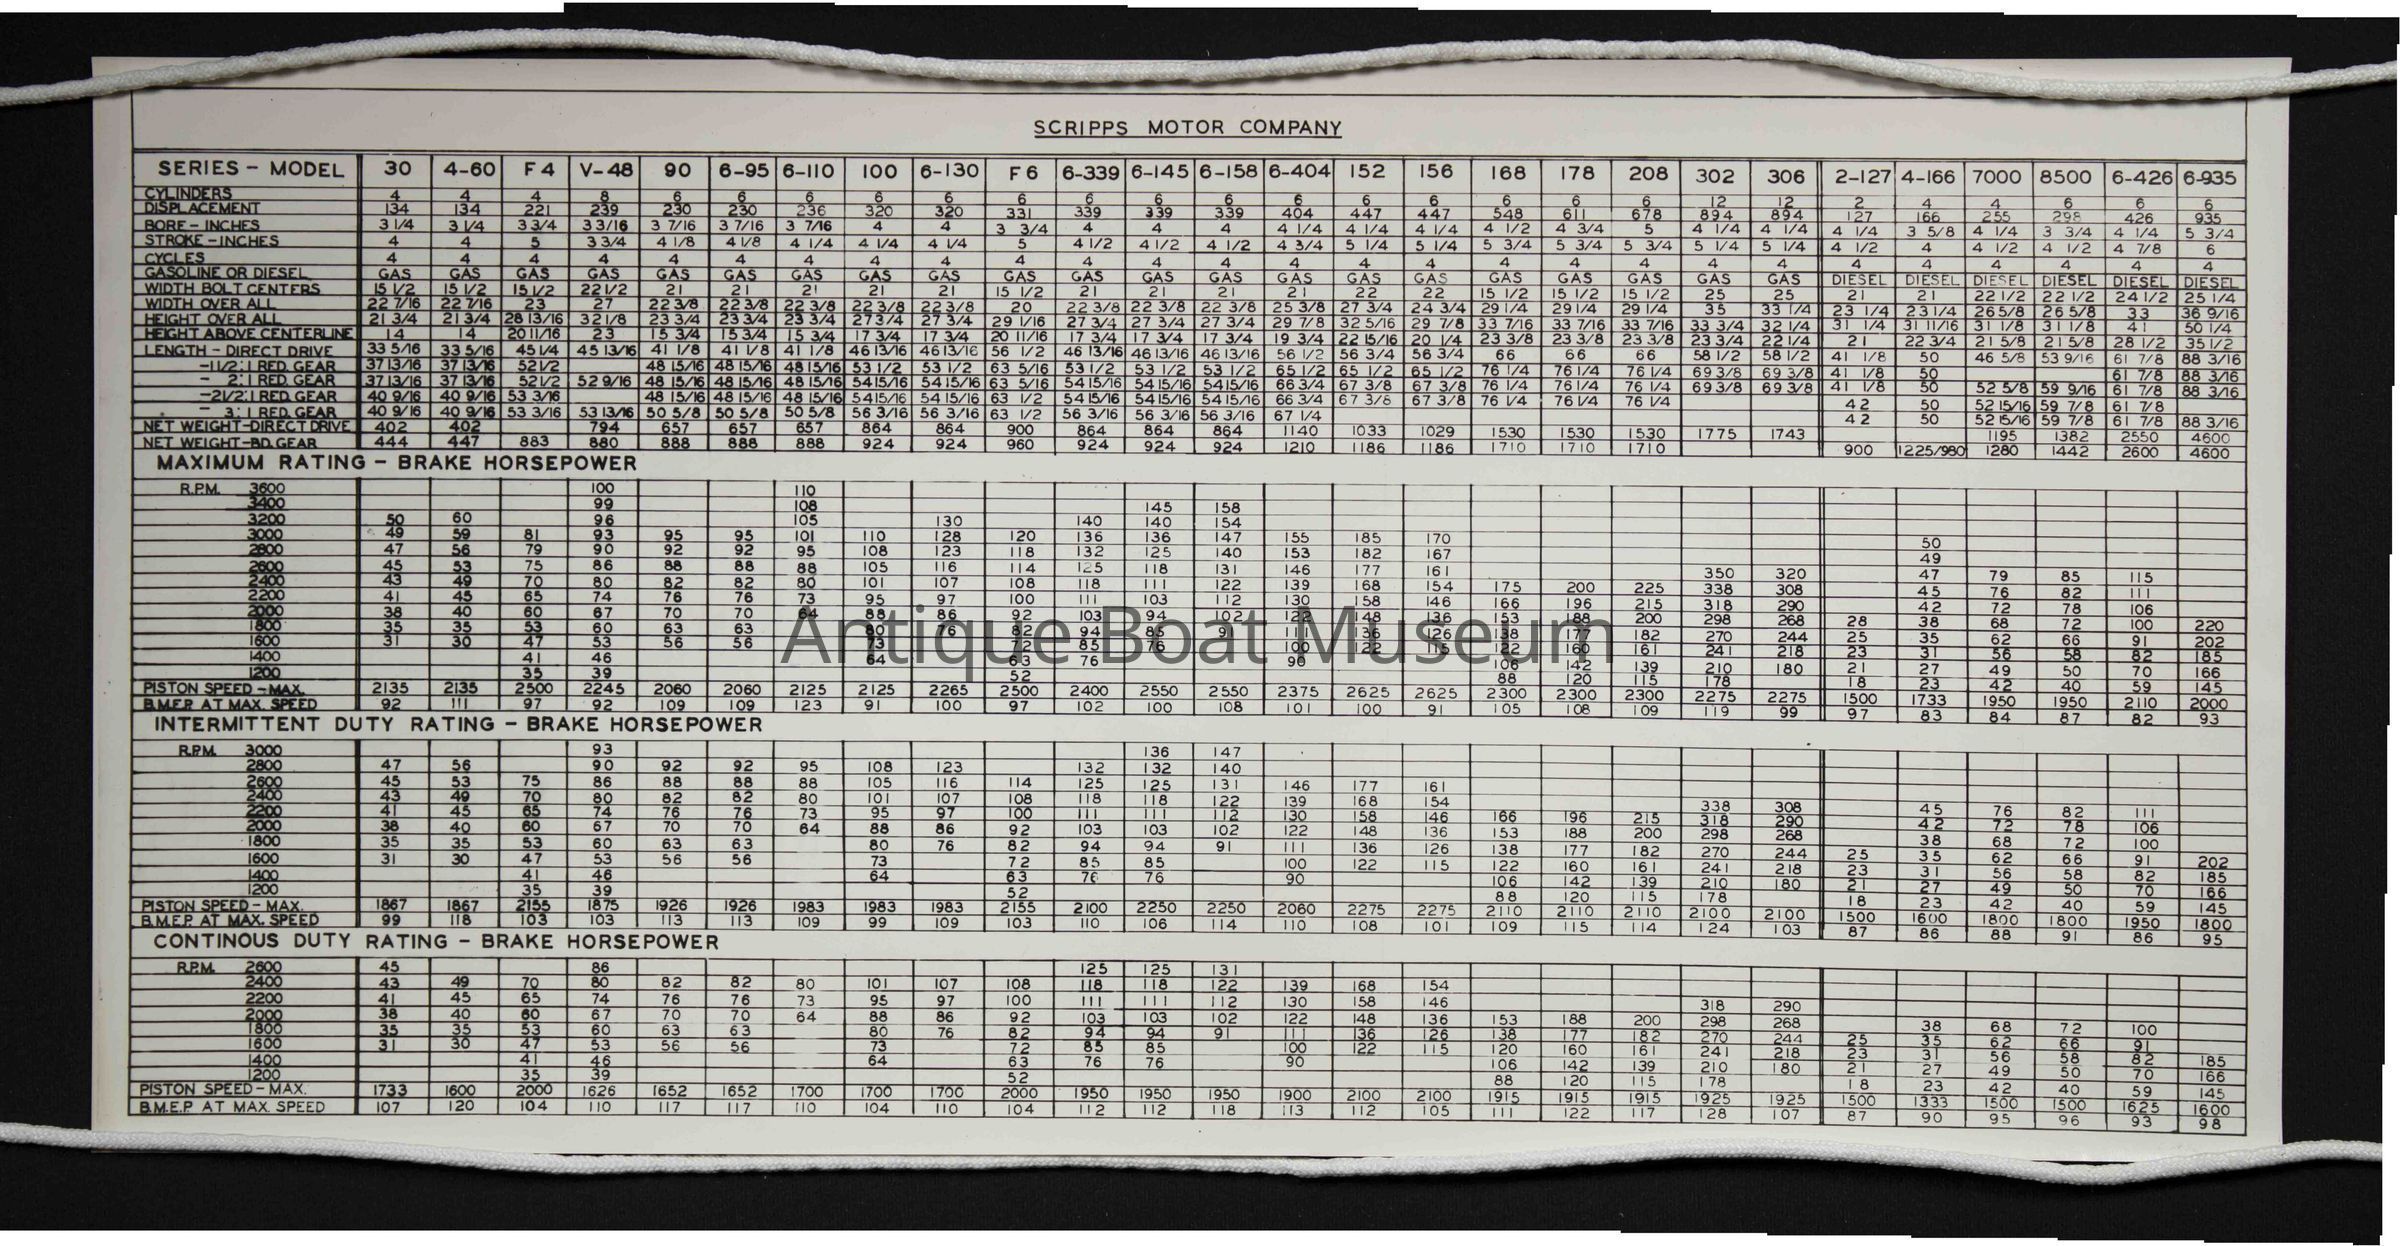 SCRIPPS MOTOR COMPANY
SERIES - MODEL 30 4-60 F 4 V-48 90 6-95 6-110 100 6-130 F 6 6-339 6-145 6-158 6-404 152 156 168 178 208 302 306 2-127 4-166 7000 8500 6-426 6-935
CYLINDERS 4 4 4 8 6 6 6 6 6 6 6 6 6 6 6 6 6 6 6 12 12 2 4 4 6 6 6
DISPLACEMENT 134 134 221 239 230 230 236 320 320 331 339 339 339 404 447 447 548 611 678 894 894 127 166 255 298 426 935
BORE - INCHES 3 1/4 3 1/4 3 3/4 3 3/16 3 7/16 3 7/16 3 7/16 4 4 3 3/4 4 4 4 4 1/4 4 1/4 4 1/4 4 1/2 4 3/4 5 4 1/4 4 1/4 4 1/4 3 5/8 4 1/4 3 3/4 4 1/4 5 3/4
STROKE - INCHES 4 4 5 3 3/4 4 1/8 4 1/8 4 1/4 4 1/4 4 1/4 5 4 1/2 4 1/2 4 1/2 4 3/4 5 1/4 5 1/4 5 3/4 5 3/4 5 3/4 5 1/4 5 1/4 4 1/2 4 4 1/2 4 1/2 4 7/8 6
CYCLES 4 4 4 4 4 4 4 4 4 4 4 4 4 4 4 4 4 4 4 4 4 4 4 4 4 4 4
GASOLINE OR DIESEL GAS GAS GAS GAS GAS GAS GAS GAS GAS GAS GAS GAS GAS GAS GAS GAS GAS GAS GAS GAS GAS DIESEL DIESEL DIESEL DIESEL DIESEL DIESEL
WIDTH BOLT CENTERS 15 1/2 15 1/2 15 1/2 22 1/2 21 21 21 21 21 15 1/2 21 21 21 21 22 22 15 1/2 15 1/2 15 1/2 25 25 21 21 22 1/2 22 1/2 24 1/2 25 1/4
WIDTH OVER ALL 22 7/16 22 7/16 23 27 22 3/8 22 3/8 22 3/8 22 3/8 22 3/8 20 22 3/8 22 3/8 22 3/8 25 3/8 27 3/4 24 3/4 29 1/4 29 1/4 29 1/4 35 33 1/4 23 1/4 23 1/4 26 5/8 26 5/8 33 36 9/16
HEIGHT OVER ALL 21 3/4 21 3/4 28 13/16 32 1/8 23 3/4 23 3/4 23 3/4 27 3/4 27 3/4 29 1/16 27 3/4 27 3/4 27 3/4 29 7/8 32 5/16 29 7/8 33 7/16 33 7/16 33 7/16 33 3/4 32 1/4 31 1/4 31 11/16 31 1/8 31 1/8 41 50 1/4
HEIGHT ABOVE CENTERLINE 14 14 20 11/16 23 15 3/4 15 3/4 15 3/4 17 3/4 17 3/4 20 11/16 17 3/4 17 3/4 17 3/4 19 3/4 22 15/16 20 1/4 23 3/8 23 3/8 23 3/8 23 3/4 22 1/4 21 22 3/4 21 5/8 21 5/8 28 1/2 35 1/2
LENGTH - DIRECT DRIVE 33 5/16 33 5/16 45 1/4 45 13/16 41 1/8 41 1/8 41 1/8 46 13/16 46 13/16 56 1/2 46 13/16 46 13/16 46 13/16 56 1/2 56 3/4 56 3/4 66 66 66 58 1/2 58 1/2 41 1/8 50 46 5/8 53 9/16 61 7/8 88 3/16
-1 1/2:1 RED. GEAR 37 13/16 37 13/16 52 1/2 48 15/16 48 15/16 48 15/16 53 1/2 53 1/2 63 5/16 53 1/2 53 1/2 53 1/2 65 1/2 65 1/2 65 1/2 76 1/4 76 1/4 76 1/4 69 3/8 69 3/8 41 1/8 50 61 7/8 88 3/16
- 2:1 RED. GEAR 37 13/16 37 13/16 52 1/2 52 9/16 48 15/16 48 15/16 48 15/16 54 15/16 54 15/16 63 5/16 54 15/16 54 15/16 54 15/16 66 3/4 67 3/8 67 3/8 76 1/4 76 1/4 76 1/4 69 3/8 69 3/8 41 1/8 50 52 5/8 59 9/16 61 7/8 88 3/16
-2 1/2:1 RED. GEAR 40 9/16 40 9/16 53 3/16 48 15/16 48 15/16 48 15/16 54 15/16 54 15/16 63 1/2 54 15/16 54 15/16 54 15/16 66 3/4 67 3/8 67 3/8 76 1/4 76 1/4 76 1/4 42 50 52 15/16 59 7/8 61 7/8
- 3:1 RED. GEAR 40 9/16 40 9/16 53 3/16 53 13/16 50 5/8 50 5/8 50 5/8 56 3/16 56 3/16 63 1/2 56 3/16 56 3/16 56 3/16 67 1/4 42 50 52 15/16 59 7/8 61 7/8 88 3/16
NET WEIGHT-DIRECT DRIVE 402 402 794 657 657 657 864 864 900 864 864 864 1140 1033 1029 1530 1530 1530 1775 1743 1195 1382 2550 4600
NET WEIGHT-RD. GEAR 444 447 883 880 888 888 888 924 924 960 924 924 924 1210 1186 1186 1710 1710 1710 900 1225/980 1280 1442 2600 4600
MAXIMUM RATING - BRAKE HORSEPOWER
R.P.M. 3600 100 110
3400 99 108 145 158
3200 50 60 96 105 130 140 140 154
3000 49 59 81 93 95 95 101 110 128 120 136 136 147 155 185 170 50
2800 47 56 79 90 92 92 95 108 123 118 132 125 140 153 182 167 49
2600 45 53 75 86 88 88 88 105 116 114 125 118 131 146 177 161 350 320 47 79 85 115
2400 43 49 70 80 82 82 80 101 107 108 118 111 122 139 168 154 175 200 225 338 308 45 76 82 111
2200 41 45 65 74 76 76 73 95 97 100 111 103 112 130 158 146 166 196 215 318 290 42 72 78 106
2000 38 40 60 67 70 70 64 88 86 92 103 94 102 122 148 136 153 188 200 298 268 28 38 68 72 100 220
1800 35 35 53 60 63 63 80 76 82 94 85 91 111 136 126 138 177 182 270 244 25 35 62 66 91 202
1600 31 30 47 53 56 56 73 72 85 76 100 122 115 122 160 161 241 218 23 31 56 58 82 185
1400 41 46 64 63 76 90 106 142 139 210 180 21 27 49 50 70 166
1200 35 39 52 88 120 115 178 18 23 42 40 59 145
PISTON SPEED - MAX. 2135 2135 2500 2245 2060 2060 2125 2125 2265 2500 2400 2550 2550 2375 2625 2625 2300 2300 2300 2275 2275 1500 1733 1950 1950 2110 2000
B.M.E.P. AT MAX. SPEED 92 111 97 92 109 109 123 91 100 97 102 100 108 101 100 91 105 108 109 119 99 97 83 84 87 82 93
INTERMITTENT DUTY RATING - BRAKE HORSEPOWER
R.P.M. 3000 93 136 147
2800 47 56 90 92 92 95 108 123 132 132 140
2600 45 53 75 86 88 88 88 105 116 114 125 125 131 146 177 161
2400 43 49 70 80 82 82 80 101 107 108 118 118 122 139 168 154 338 308 45 76 82 111
2200 41 45 65 74 76 76 73 95 97 100 111 111 112 130 158 146 166 196 215 318 290 42 72 78 106
2000 38 40 60 67 70 70 64 88 86 92 103 103 102 122 148 136 153 188 200 298 268 38 68 72 100
1800 35 35 53 60 63 63 80 76 82 94 94 91 111 136 126 138 177 182 270 244 25 35 62 66 91 202
1600 31 30 47 53 56 56 73 72 85 85 100 122 115 122 160 161 241 218 23 31 56 58 82 185
1400 41 46 64 63 76 76 90 106 142 139 210 180 21 27 49 50 70 166
1200 35 39 52 88 120 115 178 18 23 42 40 59 145
PISTON SPEED - MAX. 1867 1867 2155 1875 1926 1926 1983 1983 1983 2155 2100 2250 2250 2060 2275 2275 2110 2110 2110 2100 2100 1500 1600 1800 1800 1950 1800
B.M.E.P. AT MAX. SPEED 99 118 103 103 113 113 109 99 109 103 110 106 114 110 108 101 109 115 114 124 103 87 86 88 91 86 95
CONTINOUS DUTY RATING - BRAKE HORSEPOWER
R.P.M. 2600 45 86 125 125 131
2400 43 49 70 80 82 82 80 101 107 108 118 118 122 139 168 154
2200 41 45 65 74 76 76 73 95 97 100 111 111 112 130 158 146 318 290
2000 38 40 60 67 70 70 64 88 86 92 103 103 102 122 148 136 153 188 200 298 268 38 68 72 100
1800 35 35 53 60 63 63 80 76 82 94 94 91 111 136 126 138 177 182 270 244 25 35 62 66 91
1600 31 30 47 53 56 56 73 72 85 85 100 122 115 120 160 161 241 218 23 31 56 58 82 185
1400 41 46 64 63 76 76 90 106 142 139 210 180 21 27 49 50 70 166
1200 35 39 52 88 120 115 178 18 23 42 40 59 145
PISTON SPEED - MAX. 1733 1600 2000 1626 1652 1652 1700 1700 1700 2000 1950 1950 1950 1900 2100 2100 1915 1915 1915 1925 1925 1500 1333 1500 1500 1625 1600
B.M.E.P. AT MAX. SPEED 107 120 104 110 117 117 110 104 110 104 112 112 118 113 112 105 111 122 117 128 107 87 90 95 96 93 98
Antique Boat Museum